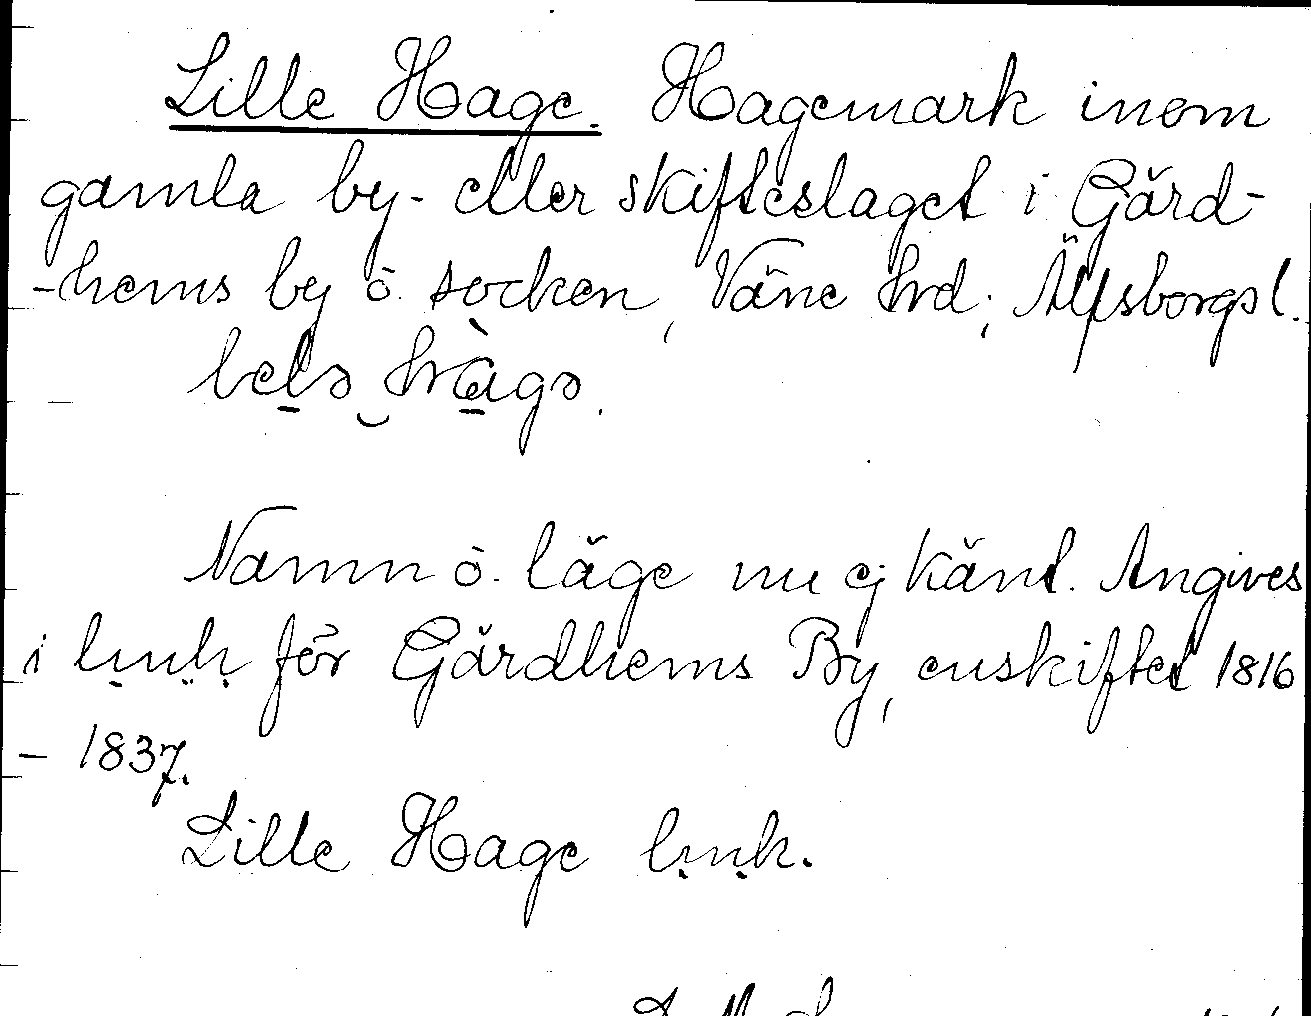 Lille Hage. Hagemark inom
gamla by- eller skifteslaget i Gärd-
-hems by o. socken, Väne hrd; Älfsborgs l.
Namn o. läge nu ej känt. Angives
i lmh för Gärdhems By, enskiftet 1816
- 1837.
Lille Hage lmh.